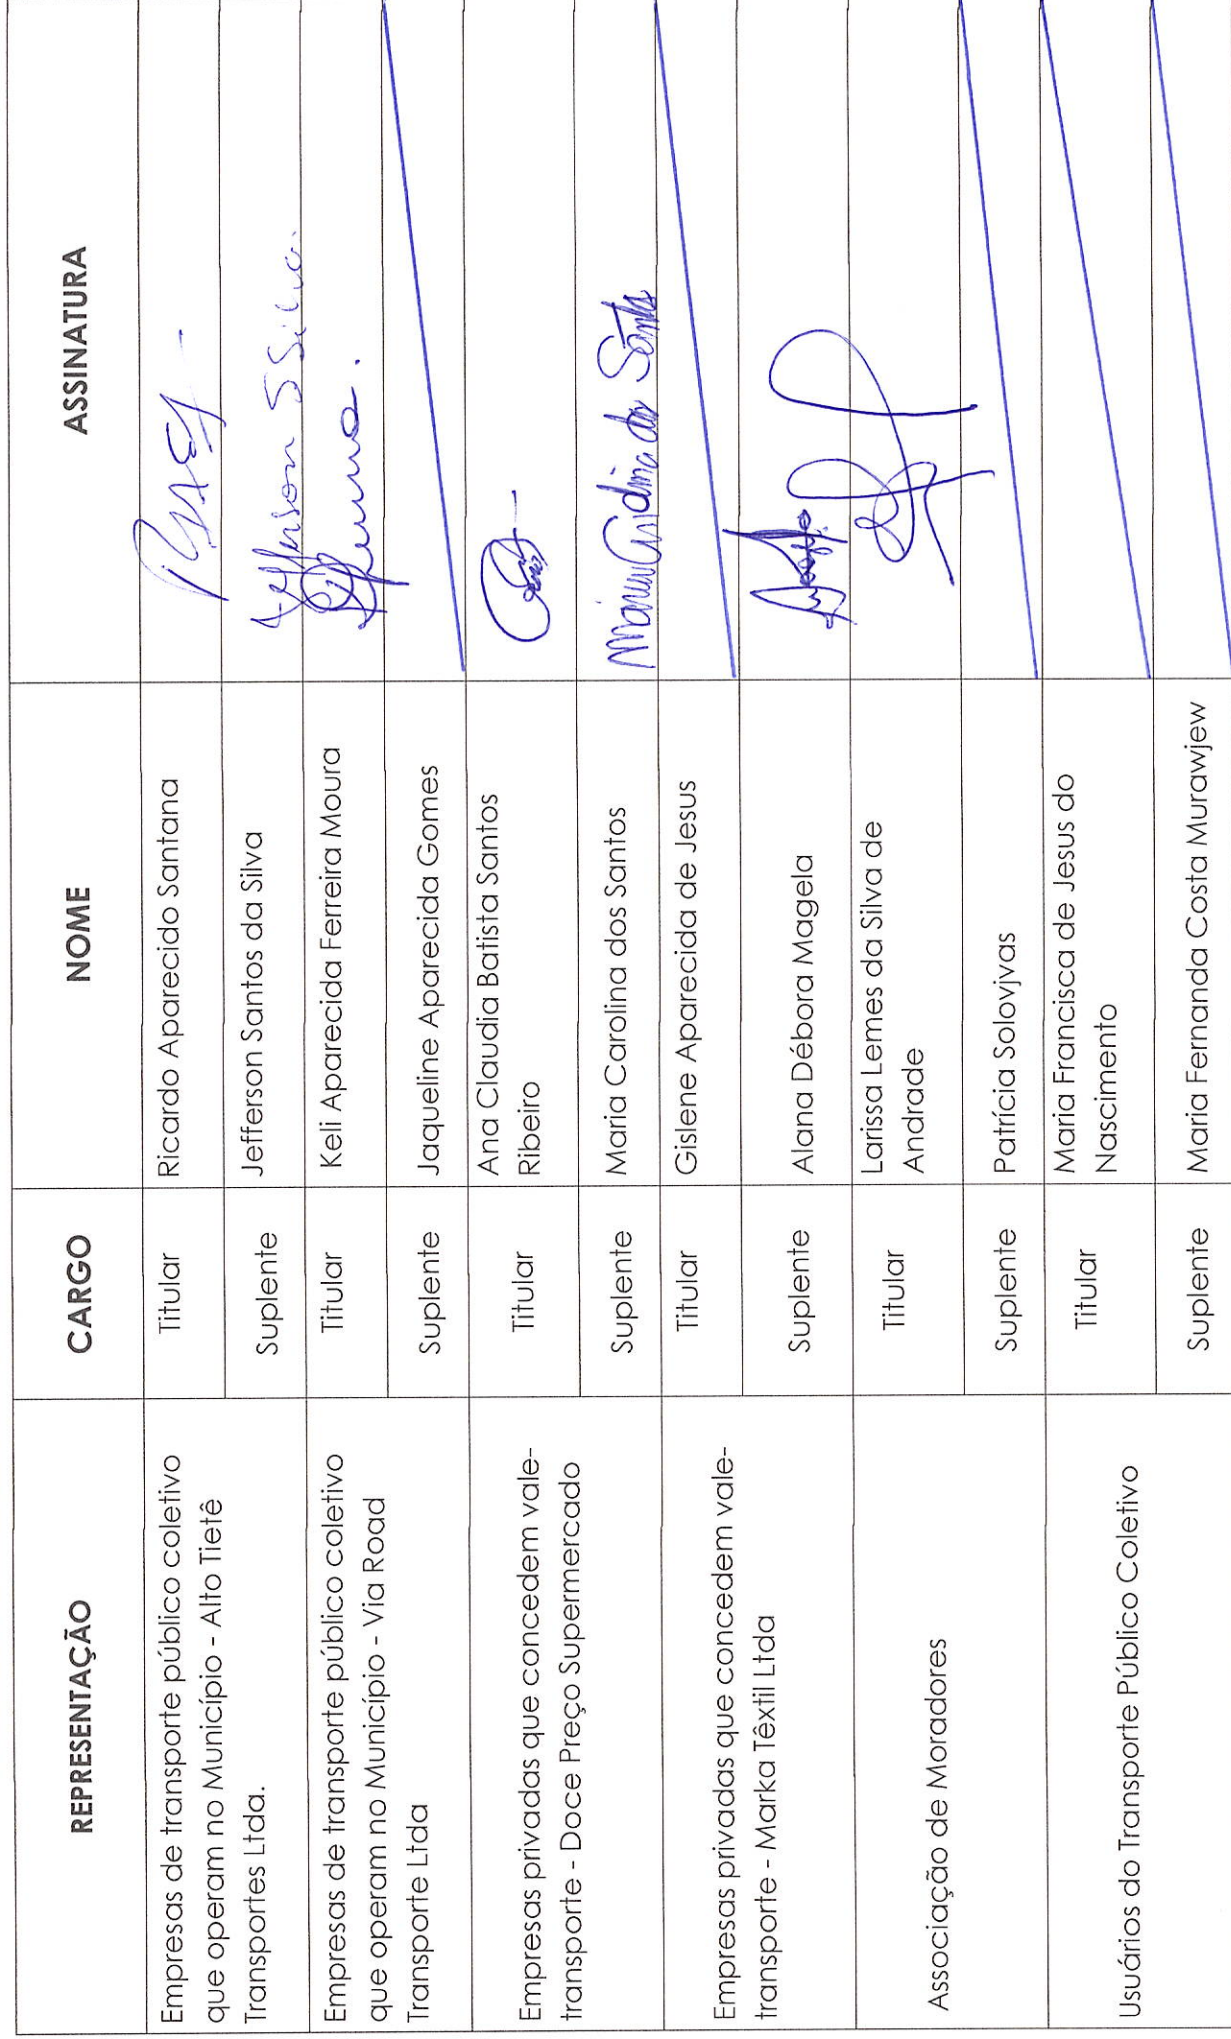 REPRESENTAÇÃO CARGO NOME ASSINATURA
Empresas de transporte público coletivo
que operam no Município - Alto Tietê
Transportes Ltda.
Titular Ricardo Aparecido Santana
Suplente Jefferson Santos da Silva Jefferson S Silva.
Empresas de transporte público coletivo
que operam no Município - Via Road
Transporte Ltda
Titular Keli Aparecida Ferreira Moura
Suplente Jaqueline Aparecida Gomes
Empresas privadas que concedem vale-
transporte - Doce Preço Supermercado
Titular Ana Claudia Batista Santos
Ribeiro
Suplente Maria Carolina dos Santos Maria Carolina dos Santos
Empresas privadas que concedem vale-
transporte - Marka Têxtil Ltda
Titular Gislene Aparecida de Jesus
Suplente Alana Débora Magela
Associação de Moradores
Titular Larissa Lemes da Silva de
Andrade
Suplente Patrícia Solovjvas
Usuários do Transporte Público Coletivo
Titular Maria Francisca de Jesus do
Nascimento
Suplente Maria Fernanda Costa Murawjew